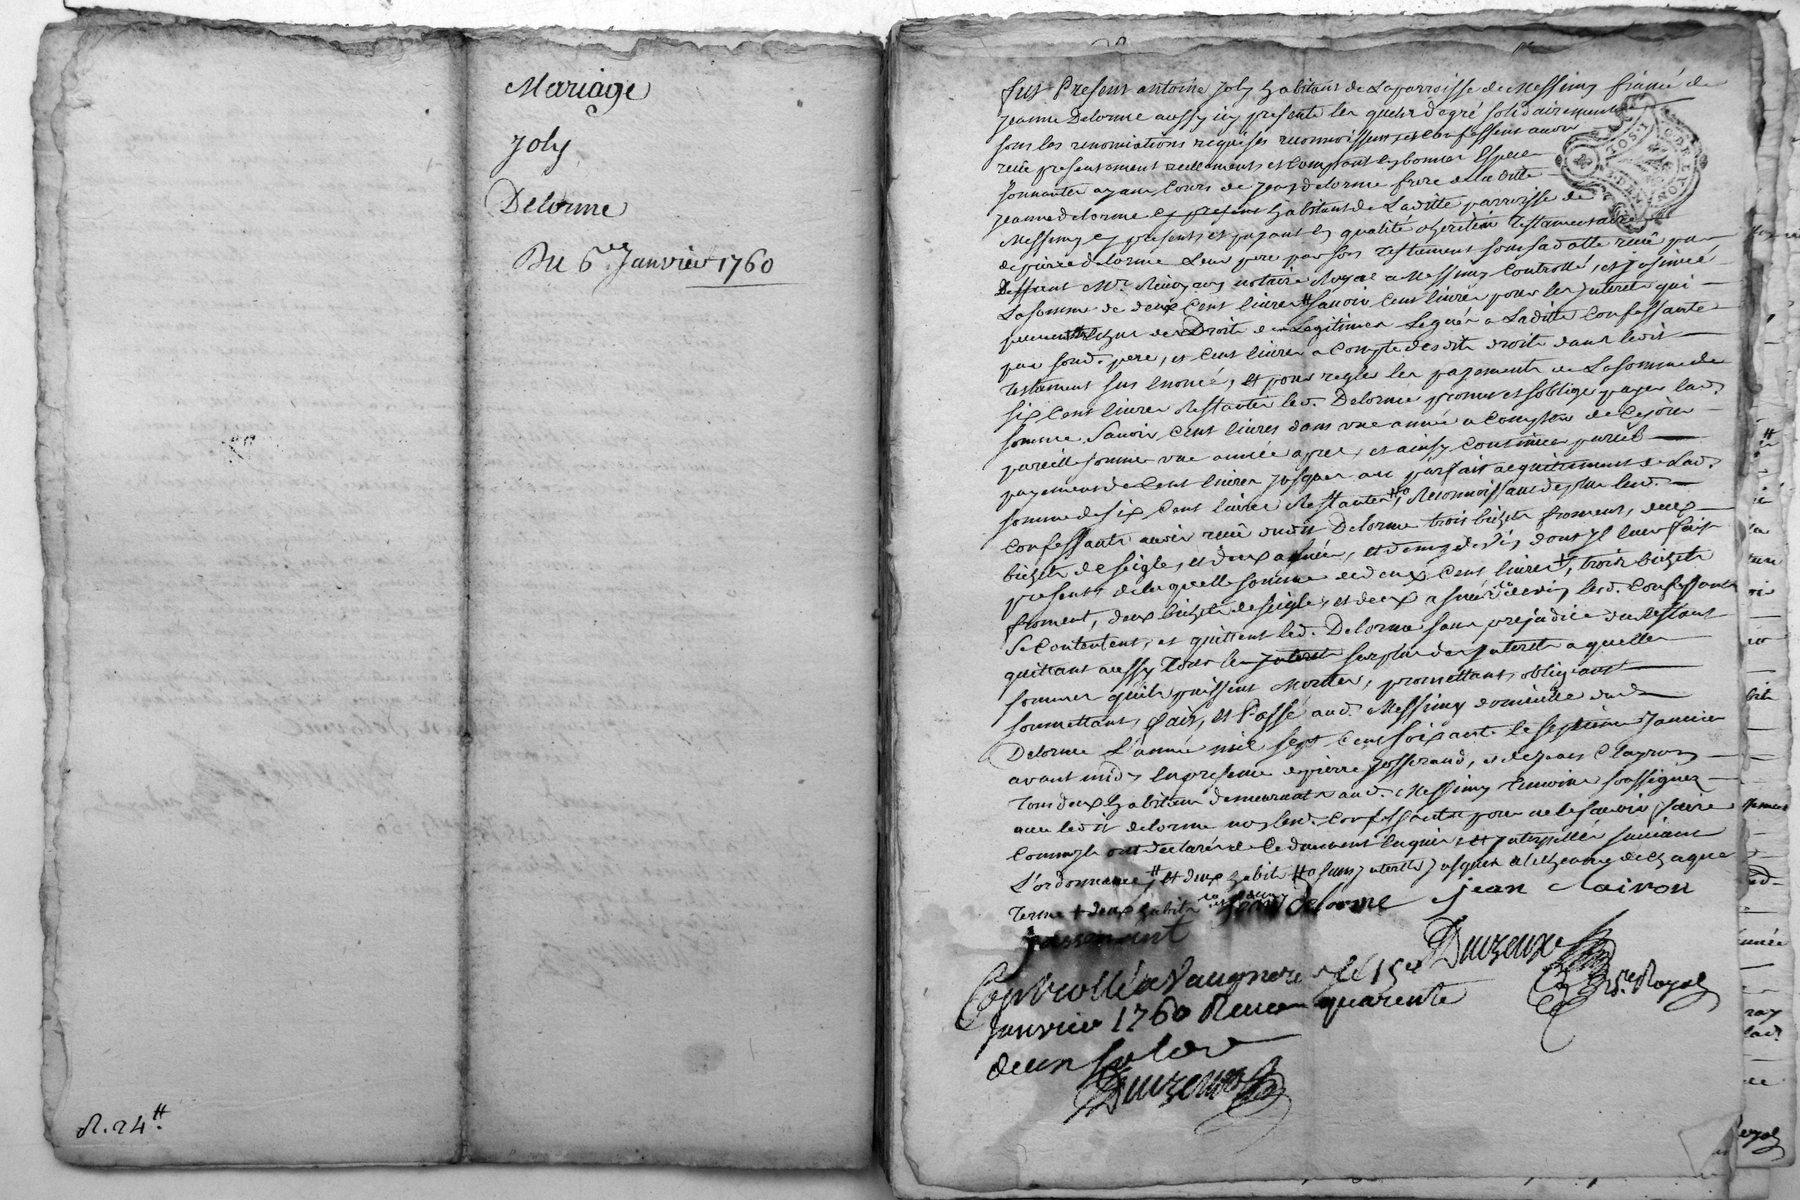 Mariage
Joly
Delorme
Du 6.e Janvier 1760
R. 24.₶
fut Present antoine Joly habitant de La parroisse de Messimy fiancé de
Jeanne Delorme aussy icy presente les quels de gré solidairement
sous les renonciations requises reconnoissent et confessent avoir
reçû presentement reellement et comptant en bonnes Especes
sonnantes ayant Cours de Jean delorme frere de la ditte
Jeanne delorme habitant de Laditte parroisse de
Messimy cy present, et payant en qualité d'heritier testamentaire
de pierre delorme Leur pere par son testament sous sa datte reçû par
deffunt Mr. notaire Royal a Messimy Controllé, et
La somme de deux Cent livres savoir Cent livres pour les interets qui
peuvent des Droits de Legitimes Legués a Laditte Confessante
par sond. pere, et Cent livres a Compte desdits droits dans ledit
testament sus enoncé, Et pour regler les payements de La somme de
six Cent livres Restantes led. Delorme promet et s'oblige payer lad.
somme Savoir Cent livres dans une année a Compter de Ce jour
pareille somme une année apres, et ainsy Continuer pareils
payements de Cent livres jusques au parfait acquittement de Lad.
somme de six Cent livres Restantes, Reconnoissant de plus lesd.
Confessants avoir reçû dudit Delorme trois bichets froment, deux
bichets de seigle, et deux asnées, et demy de vin, dont il leur fait
present, de laquelle somme de deux Cent livres, trois bichets
froment, deux bichets de seigle, et deux asnées de vin, lesd. Confessants
se Contentent, et quittent led. Delorme sans prejudice du restant
quittant aussy tous les surplus des interets a quelles
sommes qu'ils puissent Monter, promettant, obligeant
soumettant, fait, et Passé aud. Messimy domicille dud.
Delorme L'année mil sept Cent soixante le septieme Janvier
avant midy En presence de pierre Josserand, et de Jean Clayron
tous deux habitans demeurants aud. Messimy temoins soussignez
avec ledit delorme non lesd. Confessants pour ne le savoir faire
Comme ils ont declaré de Ce duement Enquis, et interpellés suivant
L'ordonnance, et deux habits sans interets jusques a l'échéance de Chaque
terme + deux habits
Jean delorme jean Clairon
Duzeux
n.re Royal
Controllé a Vaugneray le 15e
Janvier 1760 Reçu quarente
deux sols
Duzeux